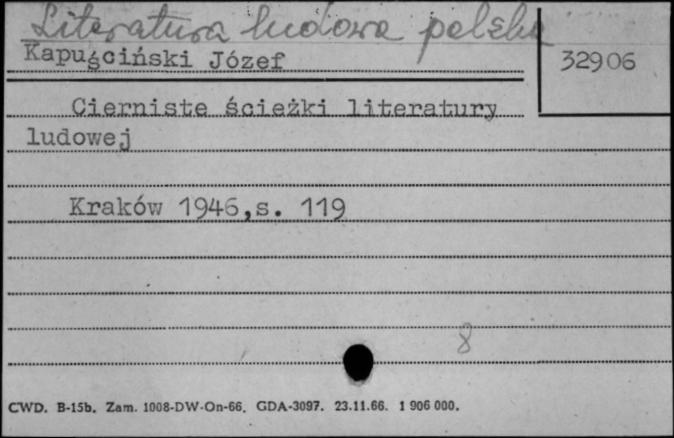 Literatura ludowa polska
Kapuściński Józef
32906
Cierniste ścieżki literatury
ludowej
Kraków 1946,s. 119
8
CWD. B-15b. Zam. 1008-DW-On-66. GDA-3097. 23.11.66. 1 906 000.